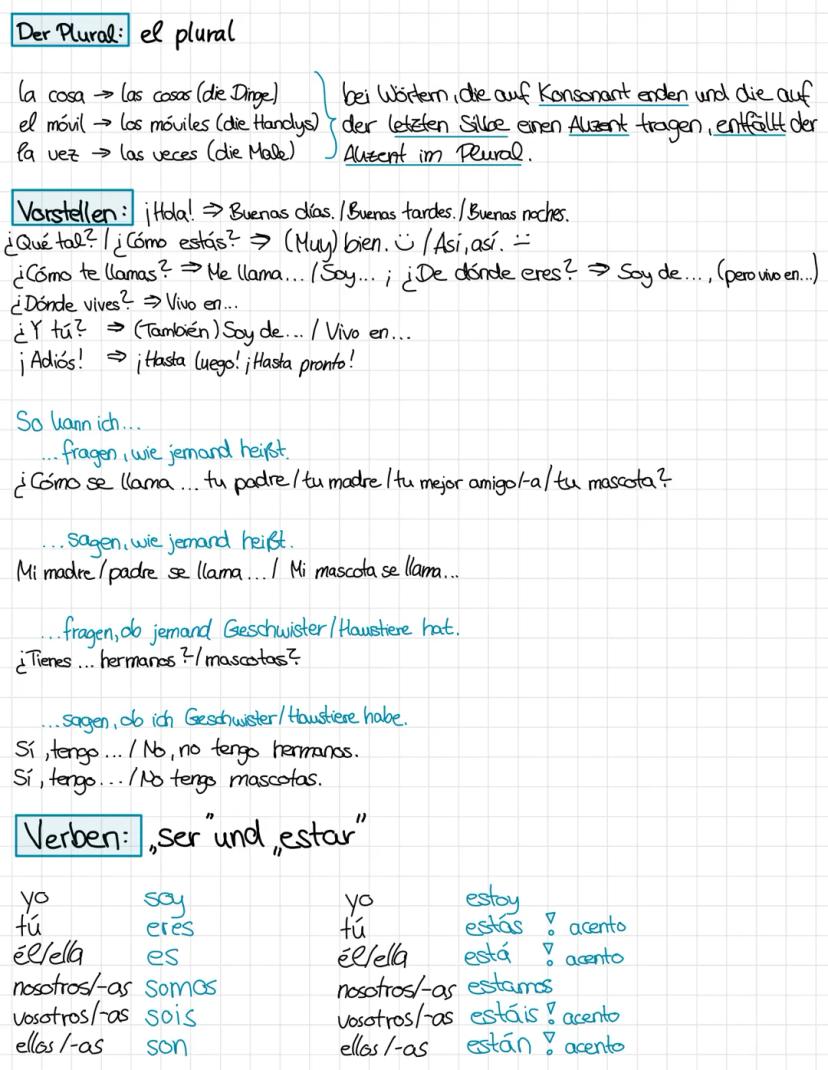 Der Plural: el plural
la cosa → las cosas (die Dinge)
el móvil → los móviles (die Handys)
la vez → las veces (die Male)
bei Wörtern, die auf Konsonant enden und die auf
der letzten Silbe einen Akzent tragen, entfällt der
Akzent im Plural.
Vorstellen: ¡Hola! ⇒ Buenas días. / Buenas tardes. / Buenas noches.
¿Qué tal? / ¿Cómo estás? ⇒ (Muy) bien. / Así, así.
¿Cómo te llamas? ⇒ Me llama... / Soy... ; ¿De dónde eres? ⇒ Soy de..., (pero vivo en...)
¿Dónde vives? ⇒ Vivo en...
¿Y tú? ⇒ (También) Soy de... / Vivo en...
¡Adiós! ⇒ ¡Hasta luego! ¡Hasta pronto!
So kann ich...
...fragen, wie jemand heißt.
¿Cómo se llama ... tu padre / tu madre / tu mejor amigo/-a / tu mascota?
...sagen, wie jemand heißt.
Mi madre / padre se llama... / Mi mascota se llama...
...fragen, ob jemand Geschwister / Haustiere hat.
¿Tienes ... hermanos? / mascotas?
...sagen, ob ich Geschwister / Haustiere habe.
Sí, tengo ... / No, no tengo hermanos.
Sí, tengo... / No tengo mascotas.
Verben: „ser" und „estar"
yo soy yo estoy
tú eres tú estás ! acento
él/ella es él/ella está ! acento
nosotros/-as somos nosotros/-as estamos
vosotros/-as sois vosotros/-as estáis ! acento
ellos/-as son ellos/-as están ! acento